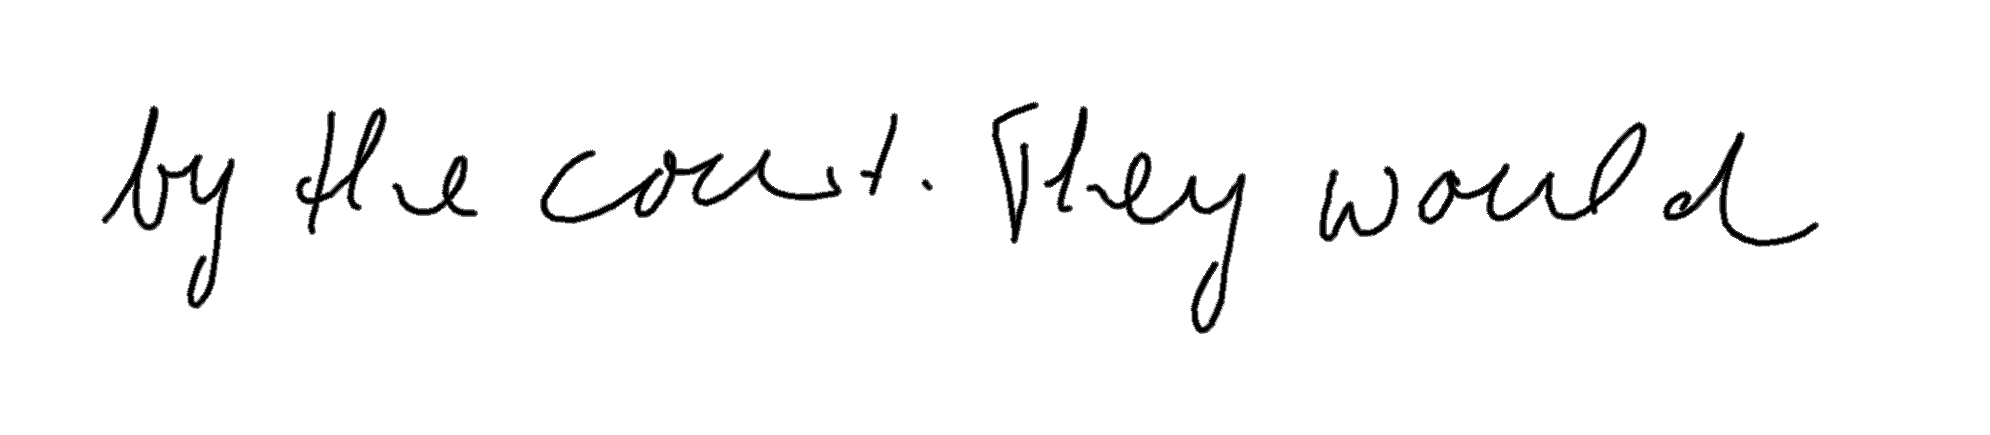 by the court. They would